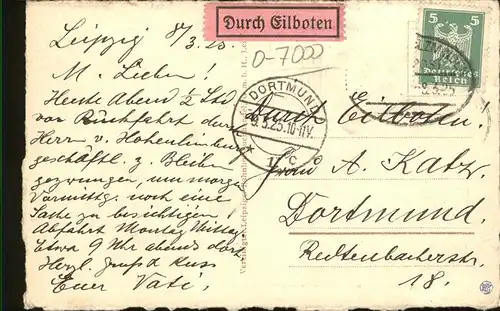 Leipzig 8/3.25
M. Lieben!
Heute Abend ½ Std
vor Rückfahrt durch
Herrn v. Hohenlimburg
geschäftl. z. Bleiben
gezwungen, um morgen
Vormittg. noch eine
Sache zu besichtigen!
Abfahrt Montag Mittag
Etwa 9 Uhr abends dort
Herzl. Gruß & Kuss
Euer Vati.
Durch Eilboten
D-7000
DORTMUND
9.3.25.10-11V.
1 c
5 5
Deutsches
Reich
Durch Eilboten!
Frau A. Katz.
Dortmund.
Redtenbacherstr.
18.